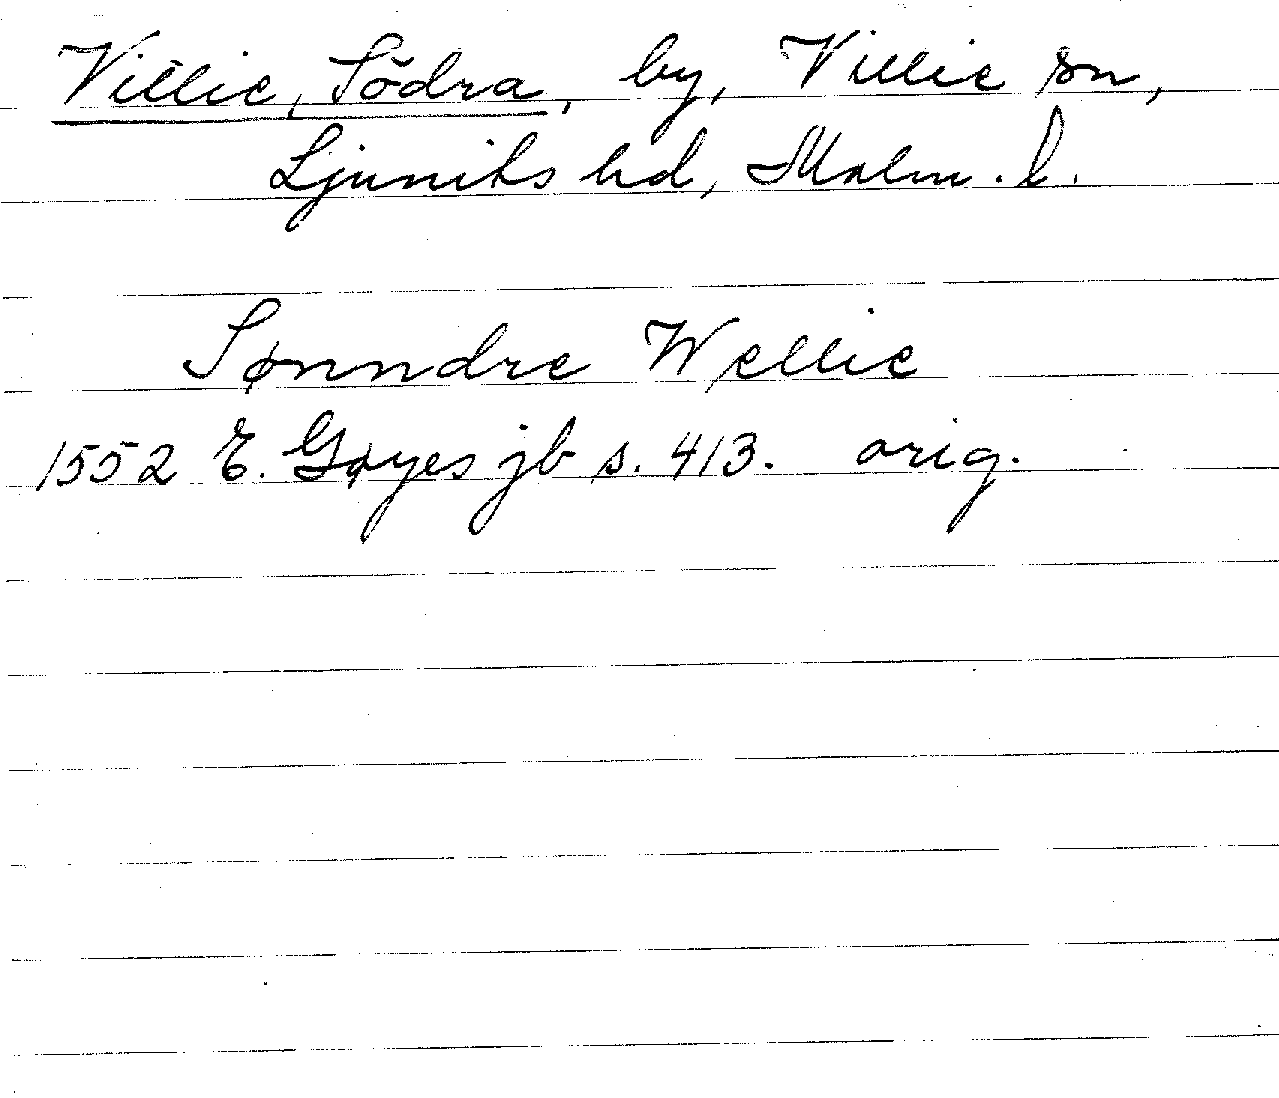 Villie, Södra, by, Villie sn,
Ljunits hd, Malm. l.
Sønndre Wellie
1552 E. Gøyes jb s. 413. orig.